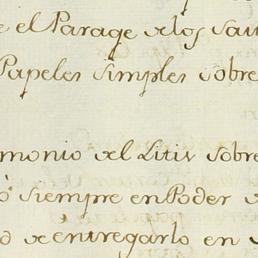 e el Parage de los Sau
Papeles simples sobre
monio del Litis sobre
ó siempre en Poder d
o de entregarlo en